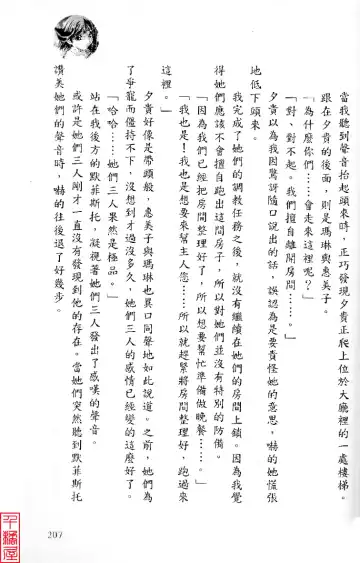 當我聽到聲音抬起頭來時，正巧發現夕貴爬上位於大廳裡的一處樓梯。
跟在夕貴的後面，則是瑪琳與惠美子。
「為什麼你們……會走來這裡呢？」
「對、對不起。我們擅自離開房間……。」
夕貴以為我因驚訝隨口說出的話，誤認為是要責怪她的意思，嚇的她慌張
地低下頭來。
我完成了她們的調教任務之後，就沒有繼續在她們的房間上鎖。因為我覺
得她們應該不會擅自跑出這間房子，所以對她們並沒有特別的防備。
「因為我們已經把房間整理好了，所以想要幫忙準備做晚餐……。」
「我也是！我也是想要來幫主人您……所以就趕緊將房間整理好，跑過來
這裡。」
夕貴好像是帶頭般，惠美子與瑪琳也異口同聲地如此說道。之前，她們為
了爭寵而僵持不下，沒想到才過沒多久，她們三人的感情已經變的這麼好了。
「哈哈……她們三人果然是極品。」
站在我後方的默菲斯托，凝視著她們三人發出了感嘆的聲音。
或許是她們三人剛才一直沒有發現到他的存在。當她們突然聽到默菲斯托
讚美她們的聲音時，嚇的往後退了好幾步。
207